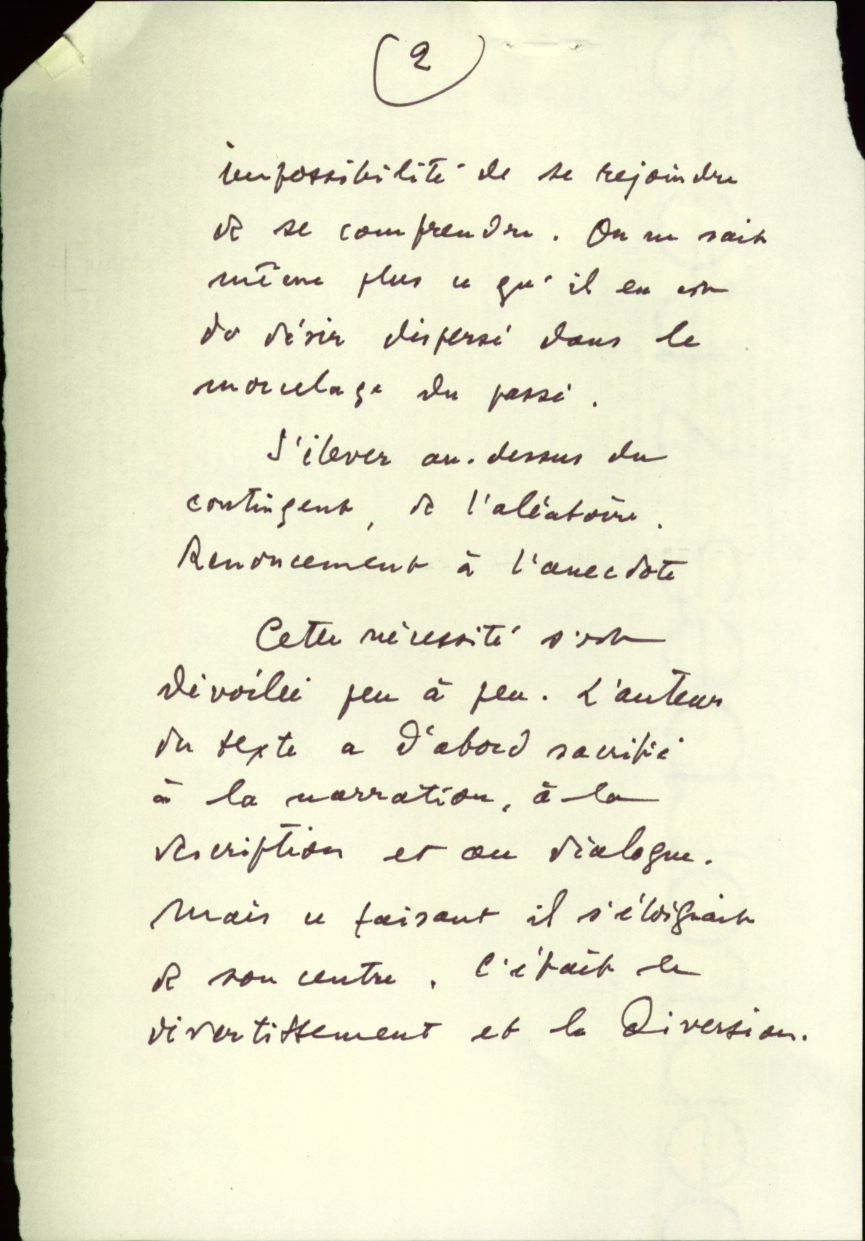 2
impossibilité de se rejoindre
de se comprendre. On ne sait
même plus ce qu'il en est
du désir dispersé dans le
morcelage du passé.
S'élever au-dessus du
contingent, de l'aléatoire.
Renoncement à l'anecdote
Cette nécessité s'est
dévoilée peu à peu. L'auteur
du texte a d'abord sacrifié
à la narration, à la
description et au dialogue.
Mais ce faisant il s'éloignait
de son centre. C'était le
divertissement et la Diversion.